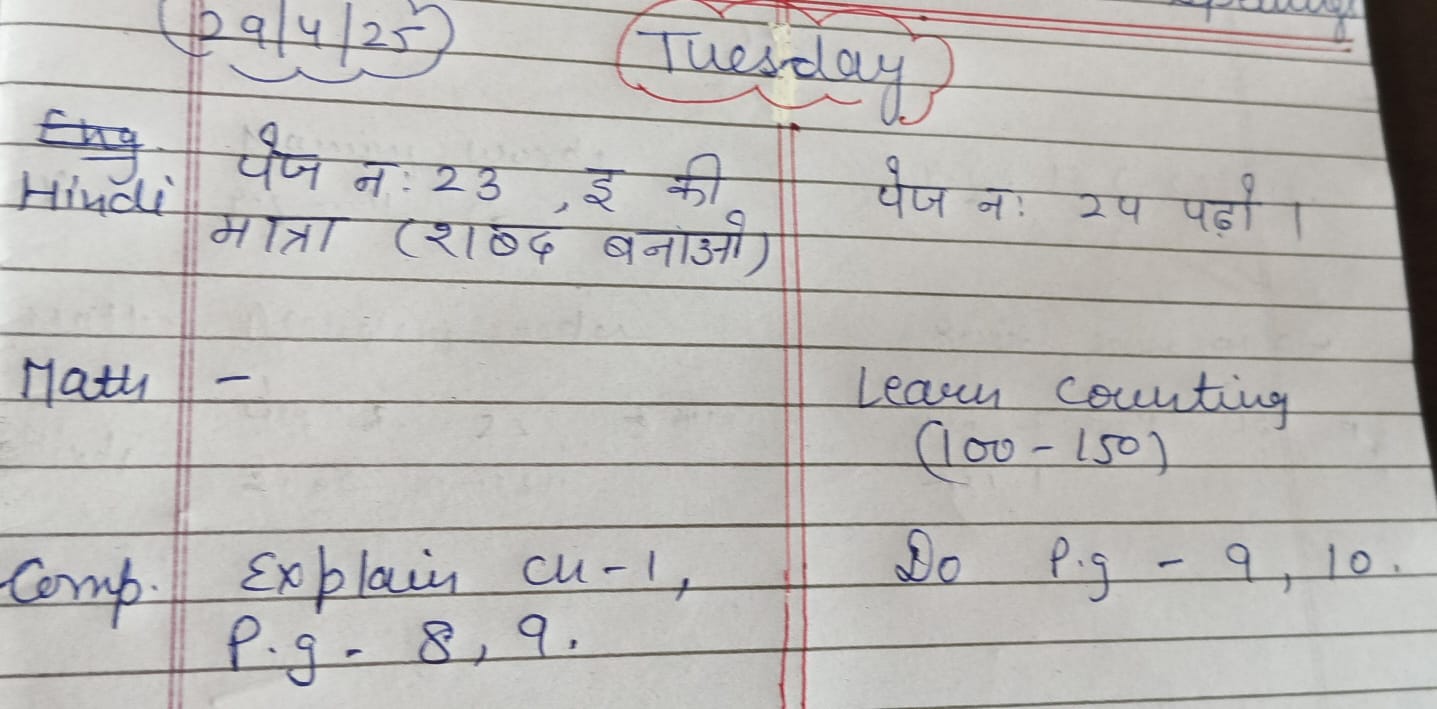 29/4/25 Tuesday
Eng
Hindi
पेज न: 23 , इ की
मात्रा (शब्द बनाओ)
पेज न: 24 पढ़ो ।
Math -
Learn counting
(100-150)
Comp. Explain CH-1,
P.g - 8, 9.
Do P.g - 9, 10.